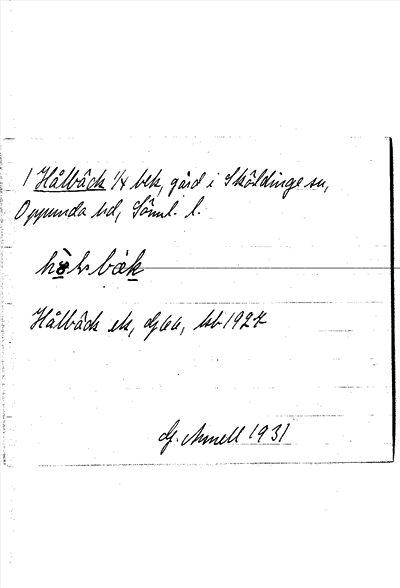 1 Hålbäck 1/4 bek, gård i Sköldinge sn,
Oppunda hd, Söml. l.
Hålbäck ek, Gek, jsb 1927
G. Annell 1931